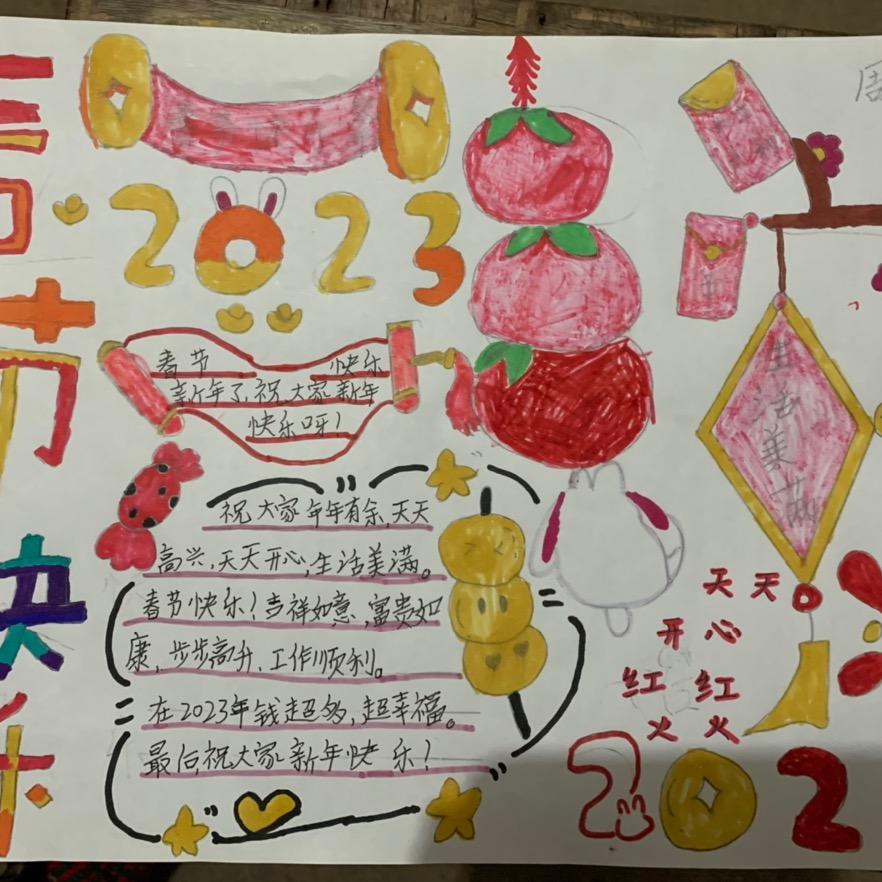 春节快乐
周
2023
春节 快乐
新年了,祝大家新年
快乐呀!
祝大家年年有余,天天
高兴,天天开心,生活美满。
春节快乐!吉祥如意,富贵如
康,步步高升,工作顺利。
在2023年钱超多,超幸福。
最后祝大家新年快乐!
生活美满
天天
开心
红红
火火
202